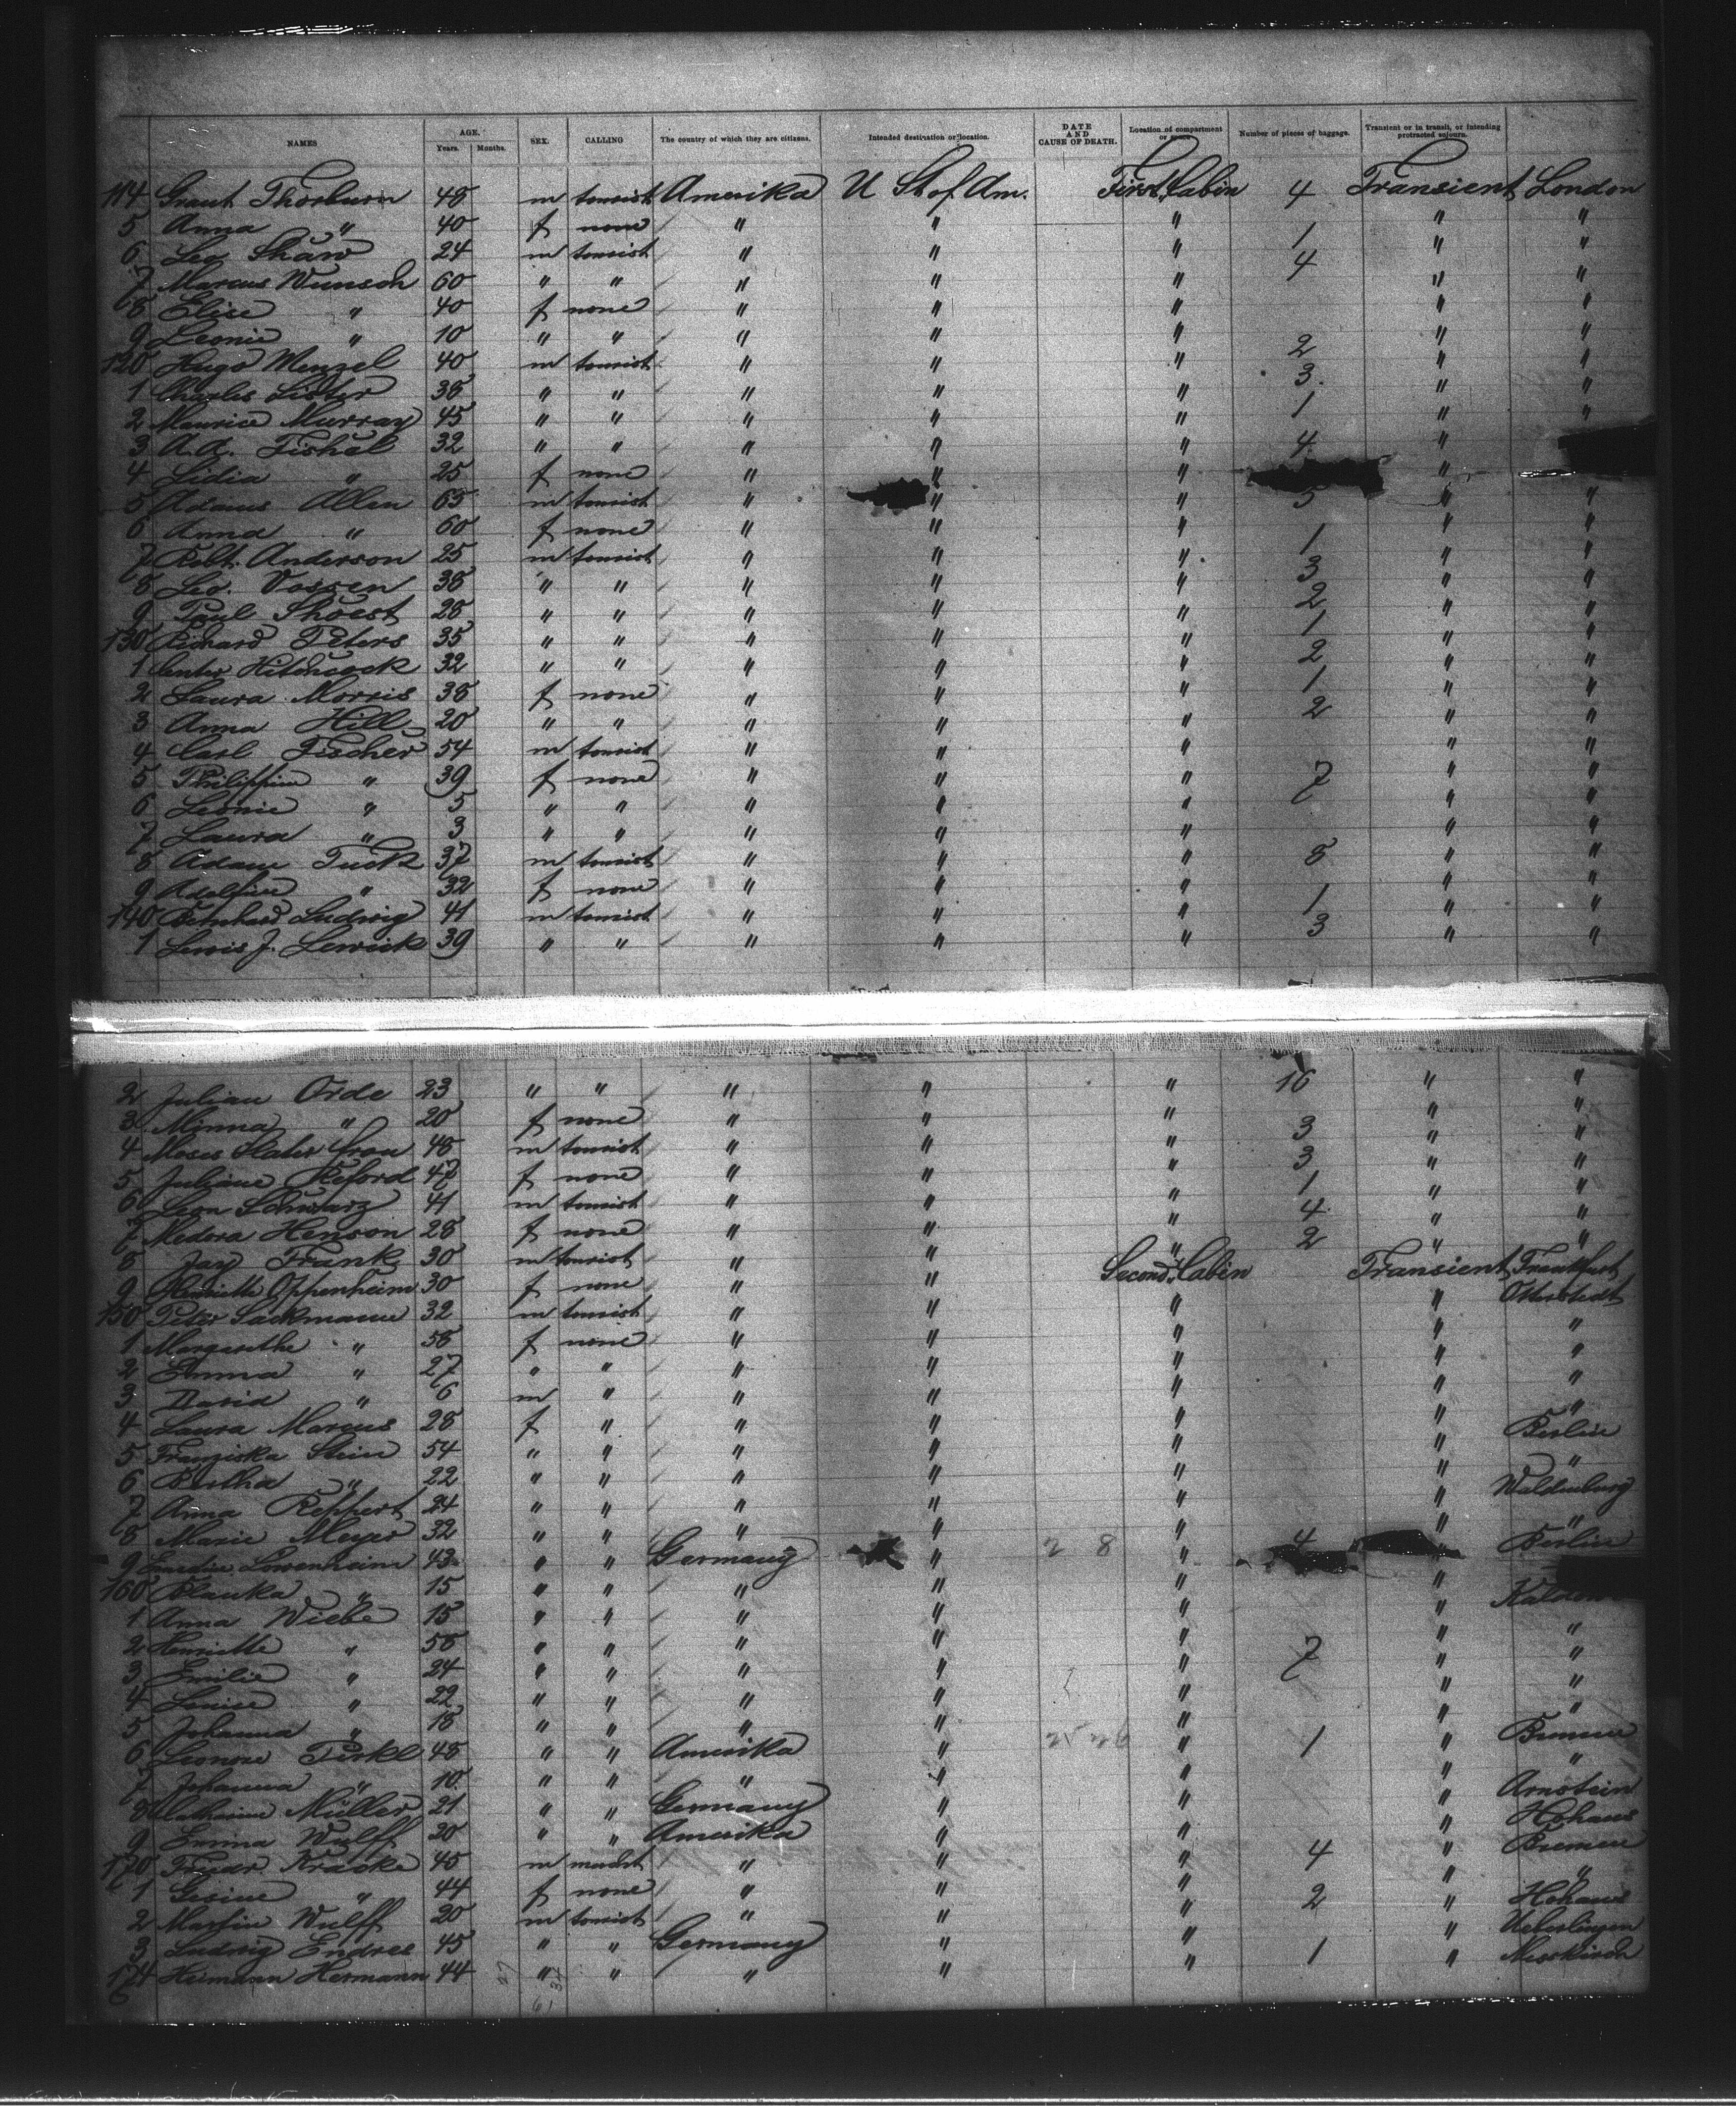 NAMES AGE. Years. Months. SEX. CALLING The country of which they are citizens. Intended destination or location. DATE AND CAUSE OF DEATH. Location of compartment or space Number of pieces of baggage. Transient or in transit, or intending protracted sojourn.
114 Grant Thorburn 48 m tourist Amerika U St of Am. First Cabin 4 Transient London
5 Anna " 40 f none " " " " "
6 Leo Shaw 24 m tourist " " " 1 " "
7 Marcus Wunsch 60 " " " " " 4 " "
8 Elise " 40 f none " " " " "
9 Leonie " 10 " " " " " " "
120 Hugo Menzel 40 m tourist " " " 2 " "
1 Charles Lister 38 " " " " " 3 " "
2 Maurice Murray 45 " " " " " 1 " "
3 A.A. Fishel 32 " " " " " 4 "
4 Lidia " 25 f none " " " "
5 Adams Allen 65 m tourist " " " 5 " "
6 Anna " 60 f none " " " " "
7 Robt. Anderson 25 m tourist " " " 1 " "
8 Leo. Vossen 38 " " " " " 3 " "
9 Paul Shoest 28 " " " " " 2 " "
130 Richard Peters 35 " " " " " 1 " "
1 Center Hitchcock 32 " " " " " 2 " "
2 Laura Morris 38 f none " " " 1 " "
3 Anna Hill 20 " " " " " 2 " "
4 Carl Fischer 54 m tourist " " " " "
5 Philippine " 39 f none " " " 7 " "
6 Leonie " 5 " " " " " " "
7 Laura " 3 " " " " " " "
8 Adam Tuck 37 m tourist " " " 8 " "
9 Adelfine " 32 f none " " " " "
140 Bernhard Ludwig 41 m tourist " " " 1 " "
1 Lewis J. Lewick 39 " " " " " 3 " "
2 Julian Orde 23 " " " " " 16 " "
3 Minna " 20 f none " " " " "
4 Moses Slater 48 m tourist " " " 3 " "
5 Juliane Reford 47 f none " " " 3 " "
6 Leon Schwarz 41 m tourist " " " 1 " "
7 Medora Henson 28 f none " " " 4 " "
8 Jay Frank 30 m tourist " " " 2 " "
9 Henriette Oppenheim 30 f none " " Second Cabin Transient Frankfurt
150 Peter Sackmann 32 m tourist " " " " Otterstedt
1 Margarethe " 58 f none " " " " "
2 Emma " 27 " " " " " " "
3 David " 6 m " " " " " "
4 Laura Marcus 28 f " " " " " "
5 Franziska Stein 54 " " " " " " Berlin
6 Bertha " 22 " " " " " " "
7 Anna Reppert 24 " " " " " " Waldenburg
8 Marie Meyer 32 " " " " " " "
9 Emilie Lowenheim 43 " " Germany " 4 " Berlin
160 Blanka " 15 " " " " " "
1 Anna Wiebe 15 " " " " " "
2 Henriette " 58 " " " " " " "
3 Emilie " 24 " " " " " 7 " "
4 Louise " 22 " " " " " " "
5 Johanna " 18 " " " " " " "
6 Leonore Türkl 48 " " Amerika " " 1 " Bremen
7 Johanna " 10 " " " " " " "
8 Catharine Müller 21 " " Germany " " " Arnstein
9 Emma Wulff 20 " " Amerika " " "
170 Friedr Kracke 45 m " " " 4 " Bremen
1 Gesine " 44 f none " " " " "
2 Martin Wulff 20 m tourist " " " 2 "
3 Ludwig Endres 45 " " Germany " " " Ueberlingen
174 Hermann Hermann 44 " " " " " 1 "